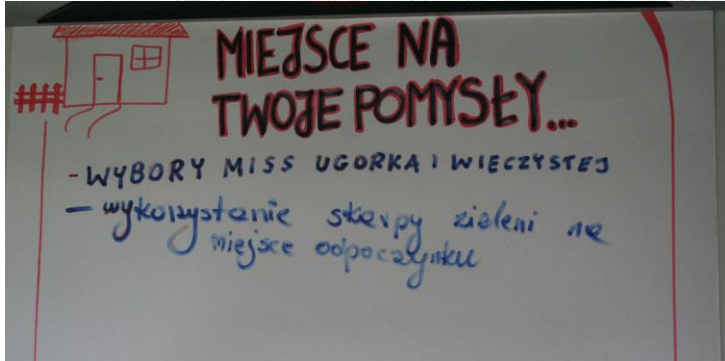 MIEJSCE NA
TWOJE POMYSŁY...
- WYBORY MISS UGORKA I WIECZYSTEJ
- wykorzystanie skarpy zieleni na
miejsce odpoczynku